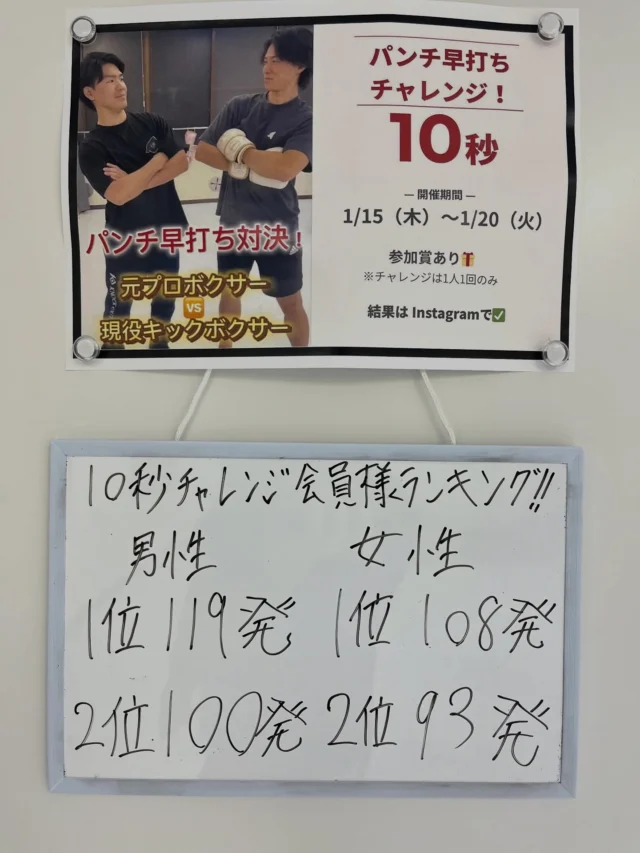 パンチ早打ち
チャレンジ！
10秒
― 開催期間 ―
1/15（木）～1/20（火）
参加賞あり🎁
※チャレンジは1人1回のみ
結果は Instagramで✅
パンチ早打ち対決！
元プロボクサー
VS
現役キックボクサー
10秒チャレンジ会員様ランキング!!
男性 女性
1位 119発 1位 108発
2位 100発 2位 93発